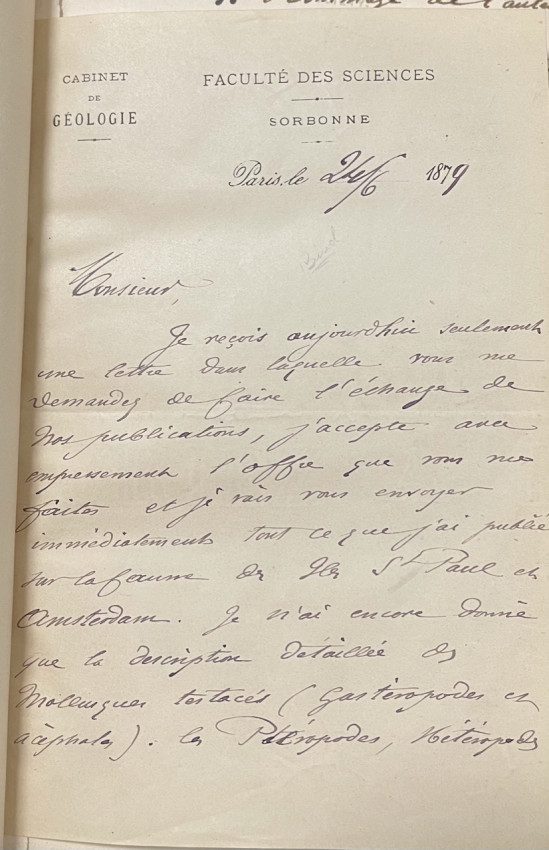 CABINET
DE
GÉOLOGIE
FACULTÉ DES SCIENCES
SORBONNE
Paris, le 24/6 1879
Monsieur,
Je reçois aujourdhui seulement
une lettre dans laquelle vous me
demandez de faire l'échange de
nos publications, j'accepte avec
empressement l'offre que vous me
faites et je vais vous envoyer
immédiatement tout ce que j'ai publié
sur la faune des Iles St Paul et
Amsterdam. Je n'ai encore donné
que la description détaillée des
Mollusques testacés (Gastéropodes et
acéphales). les Ptéropodes, Hétéropodes